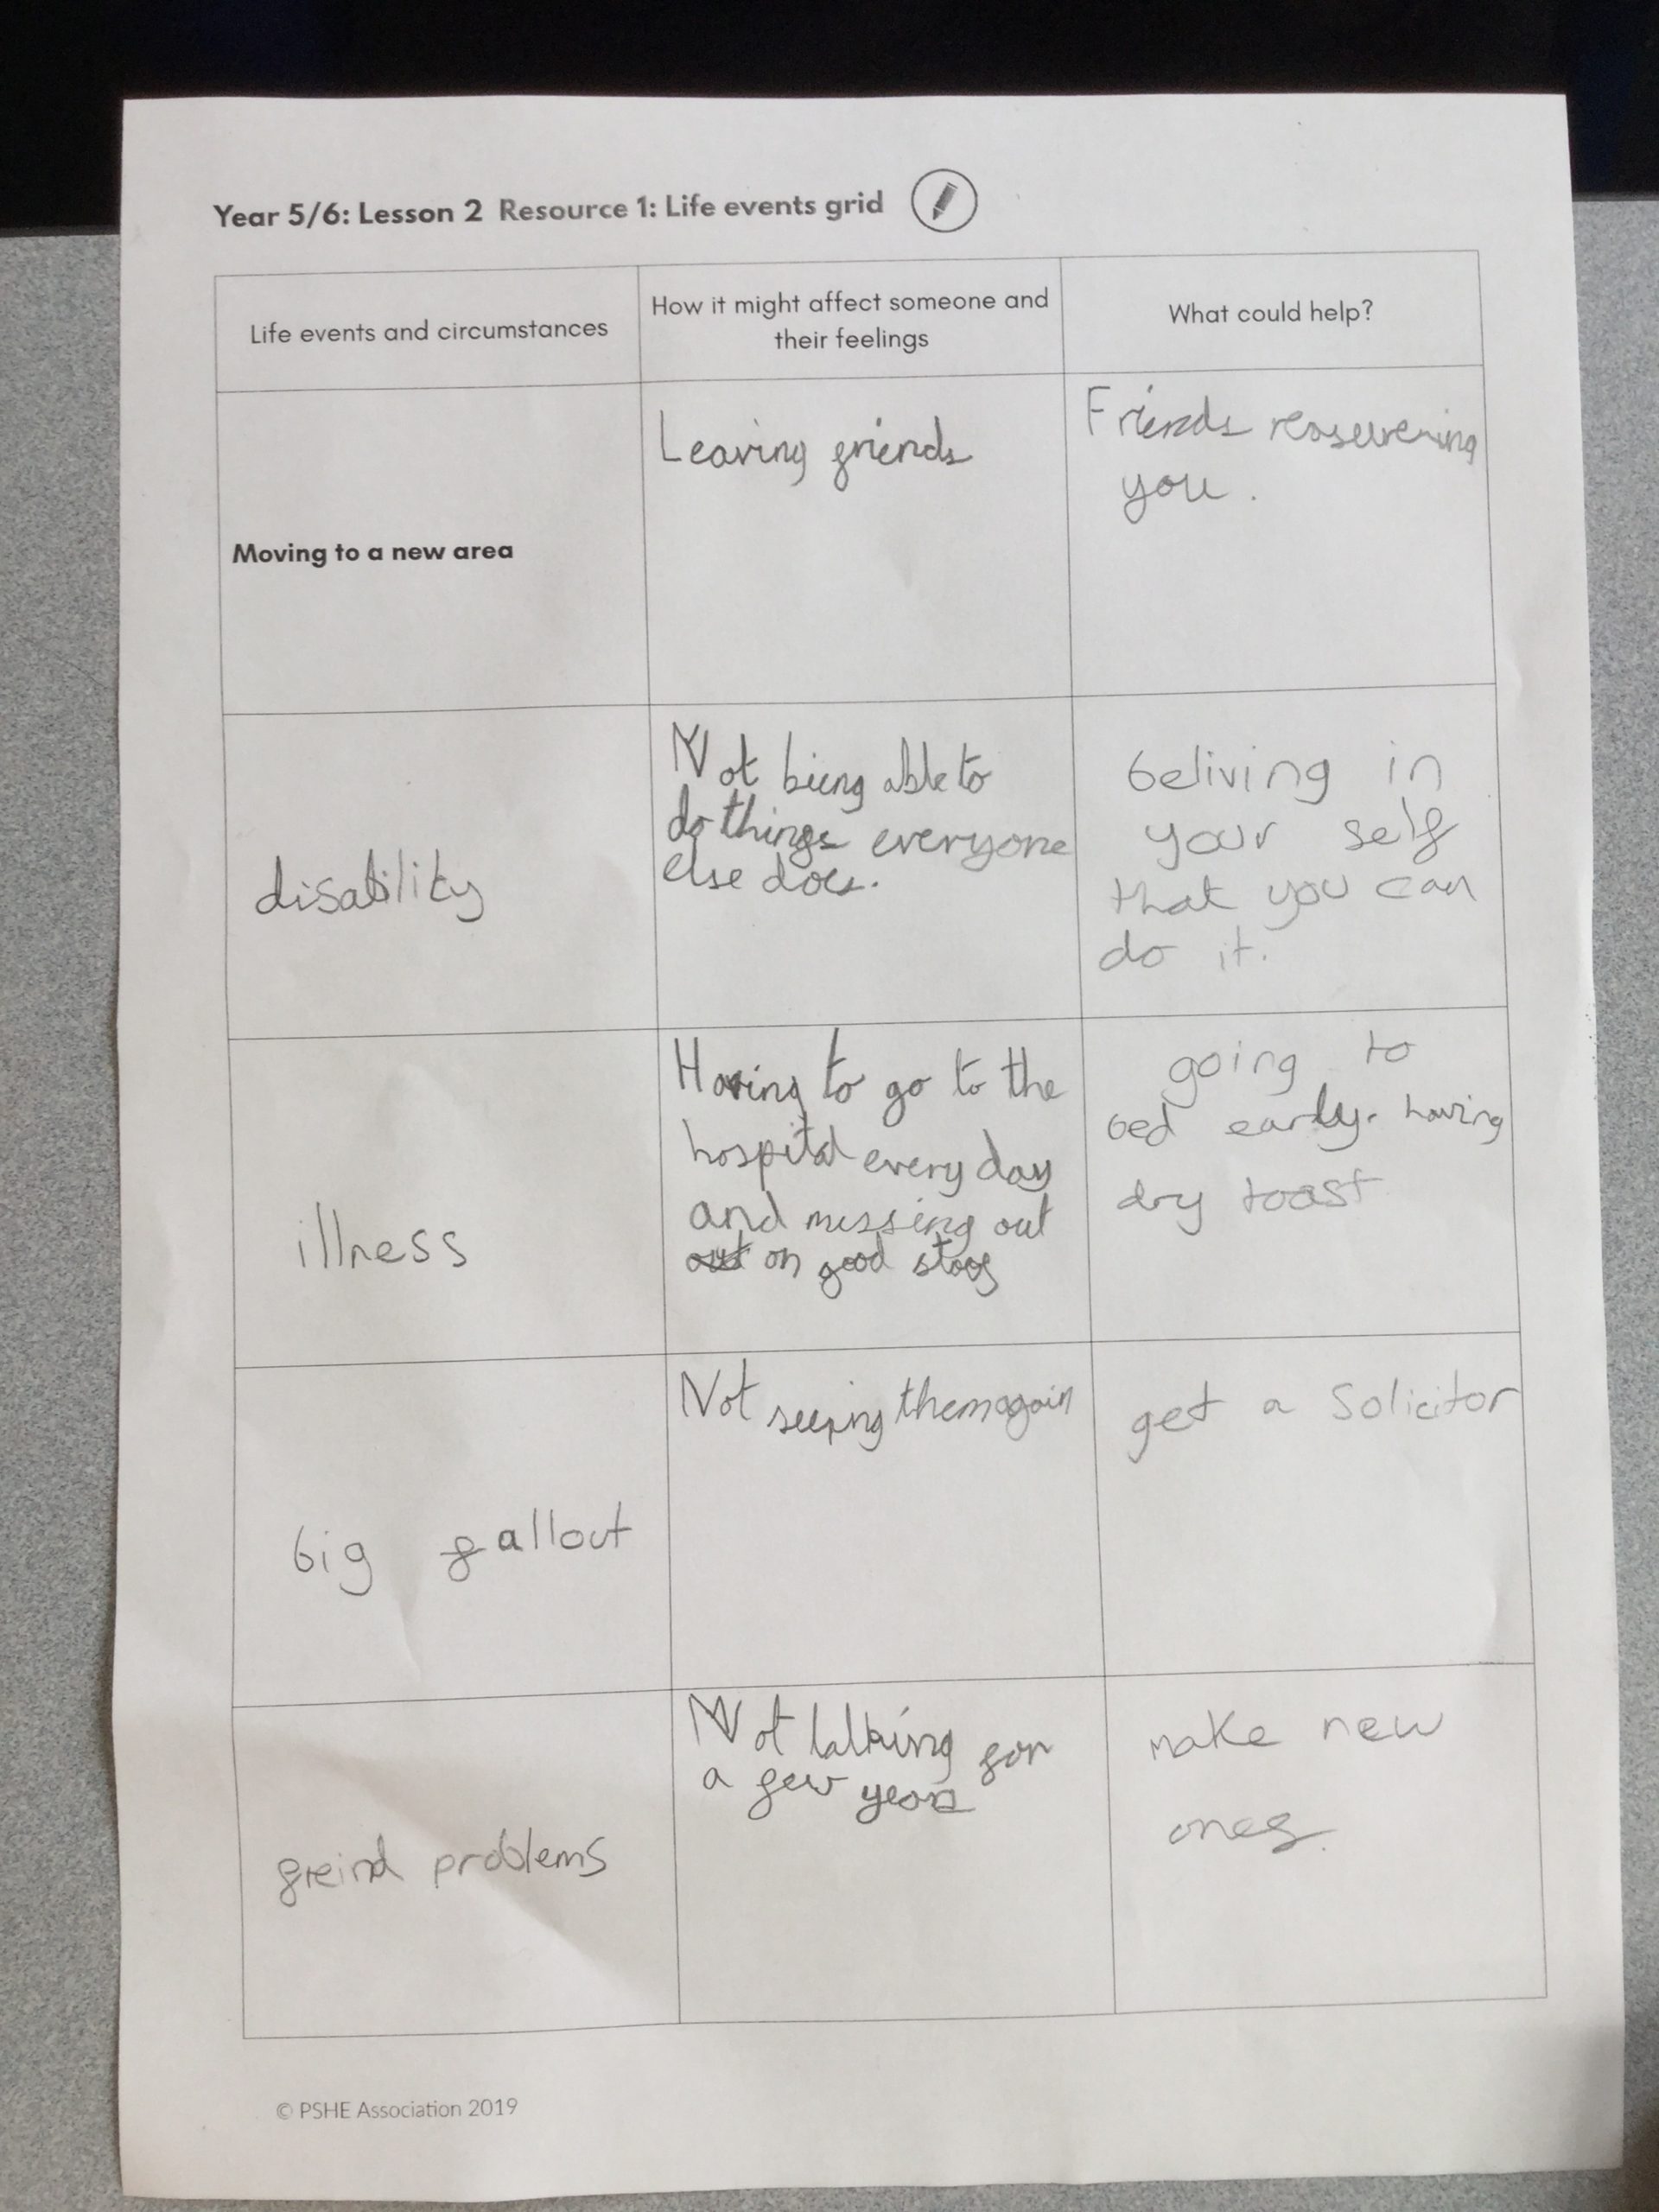 Year 5/6: Lesson 2 Resource 1: Life events grid
Life events and circumstances
How it might affect someone and
their feelings
What could help?
Moving to a new area
Leaving friends
Friends reasurering
you.
disability
Not bieng able to
do things everyone
else does.
beliving in
your self
that you can
do it.
illness
Having to go to the
hospital every day
and missing out
out on good
going to
bed early. having
dry toast
big fallout
Not seeing them again
get a Solicitor
freind problems
Not talking for
a few years
make new
ones.
© PSHE Association 2019